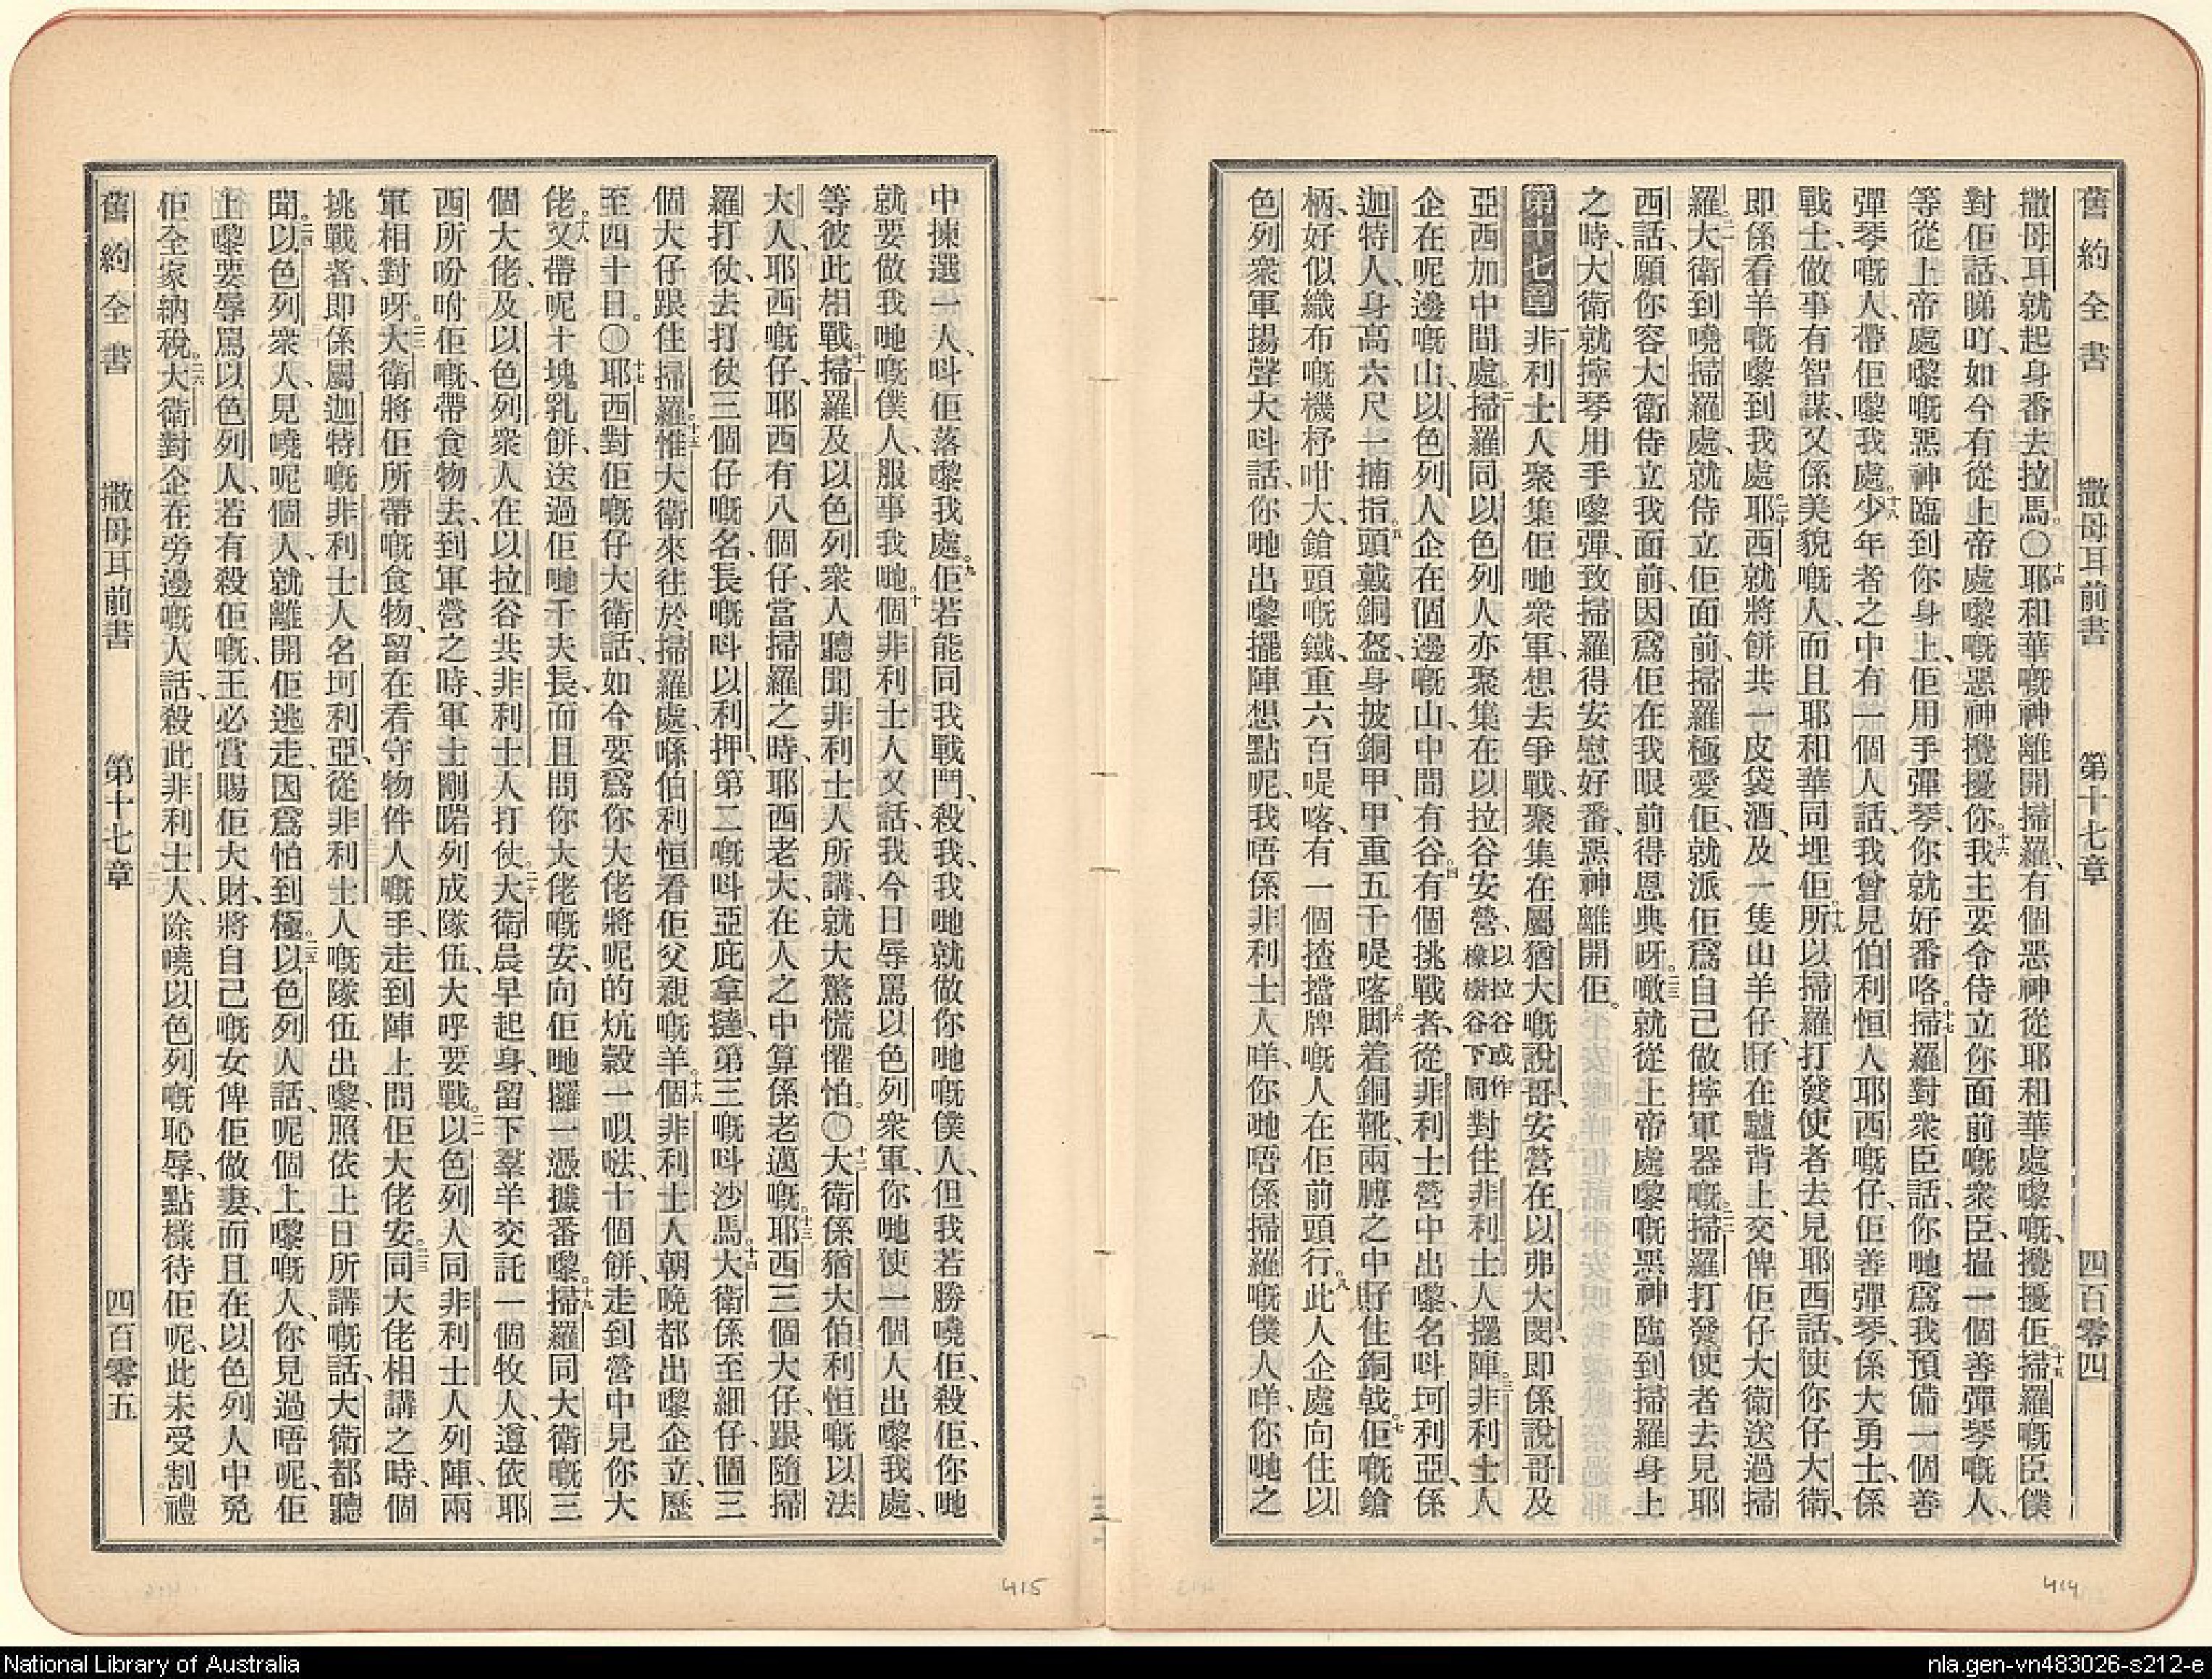 舊約全書 撒母耳前書 第十七章 四百零四
撒母耳就起身番去拉馬。〇十四耶和華嘅神離開掃羅、有個惡神從耶和華處嚟嘅、攪擾佢。十五掃羅嘅臣僕
對佢話、睇吓如今有從上帝處嚟嘅惡神攪擾你。十六我主要令侍立你面前嘅衆臣、搵一個善彈琴嘅人、
等從上帝處嚟嘅惡神臨到你身上、佢用手彈琴、你就好番咯。十七掃羅對衆臣話、你哋爲我預備一個善
彈琴嘅人、帶佢嚟我處。十八少年者之中有一個人話、我曾見伯利恒人耶西嘅仔、佢善彈琴、係大勇士、係
戰士、做事有智謀、又係美貌嘅人、而且耶和華同埋佢。十九所以掃羅打發使者去見耶西話、使你仔大衛、
即係看羊嘅嚟到我處。二十耶西就將餅共一皮袋酒、及一隻山羊仔、𧵳在驢背上、交俾佢仔大衛送過掃
羅。二一大衛到嘵掃羅處、就侍立佢面前、掃羅極愛佢、就派佢爲自己做擰軍器嘅。二二掃羅打發使者去見耶
西話、願你容大衛侍立我面前、因爲佢在我眼前得恩典呀。二三噉就從上帝處嚟嘅惡神臨到掃羅身上
之時、大衛就擰琴用手嚟彈、致掃羅得安慰好番、惡神離開佢。
第十七章 一非利士人聚集佢哋衆軍、想去爭戰、聚集在屬猶大嘅說哥、安營在以弗大閔、即係說哥及
亞西加中間處。二掃羅同以色列人亦聚集在以拉谷安營、以拉谷或作橡樹谷下同對住非利士人擺陣。三非利士人
企在呢邊嘅山、以色列人企在個邊嘅山、中間有谷。四有個挑戰者、從非利士營中出嚟、名呌坷利亞、係
迦特人、身高六尺一揇指。五頭戴銅盔、身披銅甲、甲重五千㖷喀。六脚着銅靴、兩膊之中𧵳住銅戟。七佢嘅鎗
柄、好似織布嘅機杼咁大、鎗頭嘅鐵、重六百㖷喀、有一個揸擋牌嘅人在佢前頭行。八此人企處向住以
色列衆軍揚聲大呌話、你哋出嚟擺陣想點呢、我唔係非利士人咩、你哋唔係掃羅嘅僕人咩、你哋之
中揀選一人、呌佢落嚟我處。九佢若能同我戰鬥、殺我、我哋就做你哋嘅僕人、但我若勝嘵佢、殺佢、你哋
就要做我哋嘅僕人、服事我哋。十個非利士人又話、我今日辱罵以色列衆軍、你哋使一個人出嚟我處、
等彼此相戰。十一掃羅及以色列衆人聽聞非利士人所講、就大驚慌懼怕。〇十二大衛係猶大伯利恒嘅以法
大人、耶西嘅仔、耶西有八個仔、當掃羅之時、耶西老大、在人之中算係老邁嘅。十三耶西三個大仔、跟隨掃
羅打仗、去打仗三個仔嘅名、長嘅呌以利押、第二嘅呌亞庇拿撻、第三嘅呌沙馬。十四大衛係至細仔、個三
個大仔跟住掃羅。十五惟大衛來往於掃羅處、喺伯利恒看佢父親嘅羊。十六個非利士人朝晚都出嚟企立、歷
至四十日。〇十七耶西對佢嘅仔大衛話、如今要爲你大佬將呢的炕穀一𠵇𠹌、十個餅、走到營中見你大
佬。十八又帶呢十塊乳餅、送過佢哋千夫長、而且問你大佬嘅安、向佢哋攞一憑據番嚟。十九掃羅同大衛嘅三
個大佬、及以色列衆人在以拉谷共非利士人打仗。二十大衛晨早起身、留下羣羊交託一個牧人、遵依耶
西所吩咐佢嘅、帶食物去、到軍營之時、軍士剛啱列成隊伍、大呼要戰。二一以色列人同非利士人列陣、兩
軍相對呀。二二大衛將佢所帶嘅食物、留在看守物件人嘅手、走到陣上問佢大佬安。二三同大佬相講之時、個
挑戰者、即係屬迦特嘅非利士人名坷利亞、從非利士人嘅隊伍出嚟、照依上日所講嘅話、大衛都聽
聞。二四以色列衆人、見嘵呢個人、就離開佢逃走、因爲怕到極。二五以色列人話、呢個上嚟嘅人、你見過唔呢、佢
上嚟要辱罵以色列人、若有殺佢嘅、王必賞賜佢大財、將自己嘅女俾佢做妻、而且在以色列人中免
佢全家納稅。二六大衛對企在旁邊嘅人話、殺此非利士人、除嘵以色列嘅恥辱、點樣待佢呢、此未受割禮
舊約全書 撒母耳前書 第十七章 四百零五
415
414
National Library of Australia
nla.gen-vn483026-s212-e